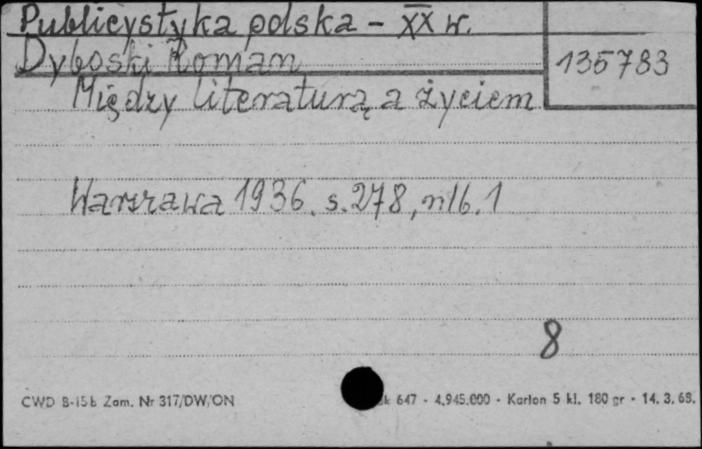 Publicystyka polska - XX w.
Dyboski Roman
135783
Między literaturą a życiem
Warszawa 1936. s. 278, nlb. 1
8
CWD B-15b Zam. Nr 317/DW/ON
647 - 4.945.000 - Karton 5 kl. 180 gr - 14. 3. 68.